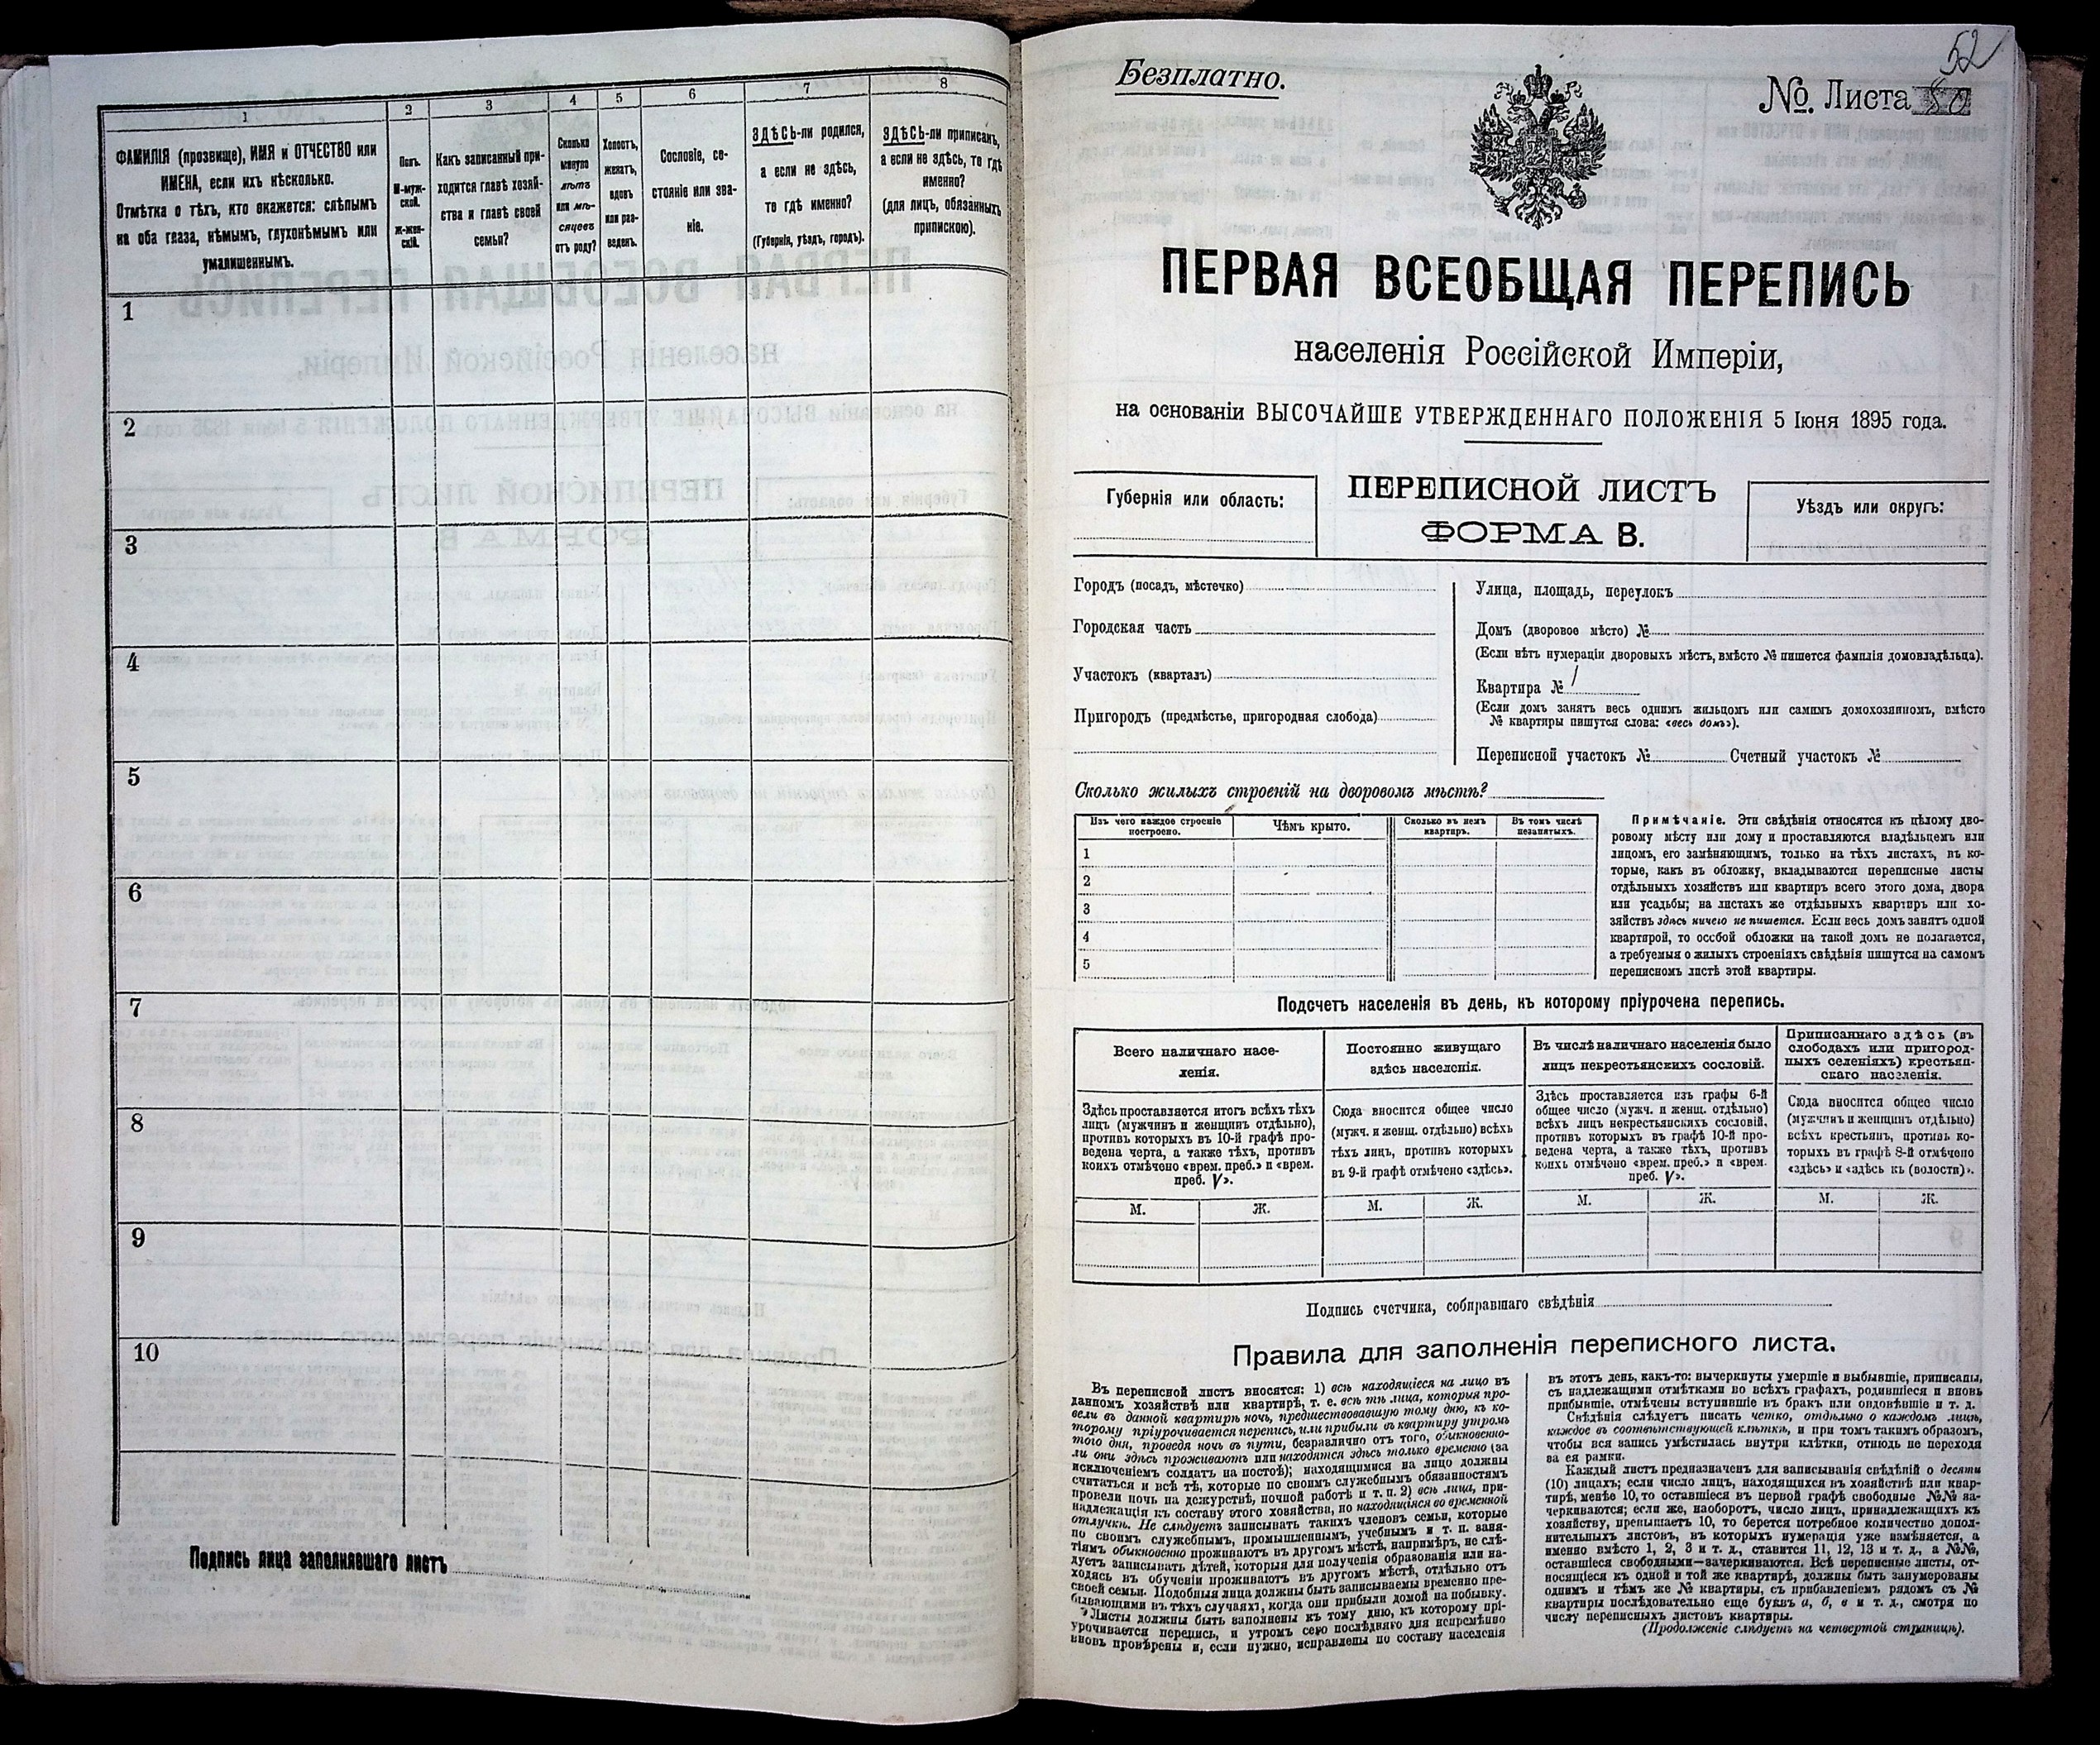 1
2
3
4
5
6
7
8
ФАМИЛІЯ (прозвище), ИМЯ и ОТЧЕСТВО или
ИМЕНА, если ихъ нѣсколько.
Отмѣтка о тѣхъ, кто окажется: слѣпымъ
на оба глаза, нѣмымъ, глухонѣмымъ или
умалишеннымъ.
Полъ.
М-муж-
ской.
Ж-жен-
скій.
Какъ записанный при-
ходится главѣ хозяй-
ства и главѣ своей
семьи?
Сколько
минуло
лѣтъ
или мѣ-
сяцевъ
отъ роду?
Холостъ,
женатъ,
вдовъ
или раз-
веденъ.
Сословіе, со-
стояніе или зва-
ніе.
ЗДѢСЬ-ли родился,
а если не здѣсь,
то гдѣ именно?
(Губернія, уѣздъ, городъ).
ЗДѢСЬ-ли приписанъ,
а если не здѣсь, то гдѣ
именно?
(для лицъ, обязанныхъ
припискою).
1
2
3
4
5
6
7
8
9
10
Подпись лица заполнявшаго листъ
52
Безплатно.
№ Листа 80
ПЕРВАЯ ВСЕОБЩАЯ ПЕРЕПИСЬ
населенія Россійской Имперіи,
на основаніи ВЫСОЧАЙШЕ УТВЕРЖДЕННАГО ПОЛОЖЕНІЯ 5 Іюня 1895 года.
Губернія или область:
ПЕРЕПИСНОЙ ЛИСТЪ
ФОРМА В.
Уѣздъ или округъ:
Городъ (посадъ, мѣстечко)
Городская часть
Участокъ (кварталъ)
Пригородъ (предмѣстье, пригородная слобода)
Улица, площадь, переулокъ
Домъ (дворовое мѣсто) №
(Если нѣтъ нумераціи дворовыхъ мѣстъ, вмѣсто № пишется фамилія домовладѣльца).
Квартира № 1
(Если домъ занятъ весь однимъ жильцомъ или самимъ домохозяиномъ, вмѣсто
№ квартиры пишутся слова: «весь домъ»).
Переписной участокъ № Счетный участокъ №
Сколько жилыхъ строеній на дворовомъ мѣстѣ?
Изъ чего каждое строеніе
построено.
Чѣмъ крыто.
Сколько въ немъ
квартиръ.
Въ томъ числѣ
незанятыхъ.
1
2
3
4
5
Примѣчаніе. Эти свѣдѣнія относятся къ цѣлому дво-
ровому мѣсту или дому и проставляются владѣльцемъ или
лицомъ, его замѣняющимъ, только на тѣхъ листахъ, въ ко-
торые, какъ въ обложку, вкладываются переписные листы
отдѣльныхъ хозяйствъ или квартиръ всего этого дома, двора
или усадьбы; на листахъ же отдѣльныхъ квартиръ или хо-
зяйствъ здѣсь ничего не пишется. Если весь домъ занятъ одной
квартирой, то особой обложки на такой домъ не полагается,
а требуемыя о жилыхъ строеніяхъ свѣдѣнія пишутся на самомъ
переписномъ листѣ этой квартиры.
Подсчетъ населенія въ день, къ которому пріурочена перепись.
Всего наличнаго насе-
ленія.
Постоянно живущаго
здѣсь населенія.
Въ числѣ наличнаго населенія было
лицъ некрестьянскихъ сословій.
Приписаннаго здѣсь (въ
слободахъ или пригород-
ныхъ селеніяхъ) крестьян-
скаго населенія.
Здѣсь проставляется итогъ всѣхъ тѣхъ
лицъ (мужчинъ и женщинъ отдѣльно),
противъ которыхъ въ 10-й графѣ про-
ведена черта, а также тѣхъ, противъ
коихъ отмѣчено «врем. преб.» и «врем.
преб. V».
Сюда вносится общее число
(мужч. и женщ. отдѣльно) всѣхъ
тѣхъ лицъ, противъ которыхъ
въ 9-й графѣ отмѣчено «здѣсь».
Здѣсь проставляется изъ графы 6-й
общее число (мужч. и женщ. отдѣльно)
всѣхъ лицъ некрестьянскихъ сословій,
противъ которыхъ въ графѣ 10-й про-
ведена черта, а также тѣхъ, противъ
коихъ отмѣчено «врем. преб.» и «врем.
преб. V».
Сюда вносится общее число
(мужчинъ и женщинъ отдѣльно)
всѣхъ крестьянъ, противъ ко-
торыхъ въ графѣ 8-й отмѣчено
«здѣсь» и «здѣсь къ (волости)».
М. Ж. М. Ж. М. Ж. М. Ж.
Подпись счетчика, собиравшаго свѣдѣнія
Правила для заполненія переписного листа.
Въ переписной листъ вносятся: 1) всѣ находящіеся на лицо въ
данномъ хозяйствѣ или квартирѣ, т. е. всѣ тѣ лица, которыя про-
вели въ данной квартирѣ ночь, предшествовавшую тому дню, къ ко-
торому пріурочивается перепись, или прибыли въ квартиру утромъ
того дня, проведя ночь въ пути, безразлично отъ того, обыкновенно-
ли они здѣсь проживаютъ или находятся здѣсь только временно (за
исключеніемъ солдатъ на постоѣ); находящимися на лицо должны
считаться и всѣ тѣ, которые по своимъ служебнымъ обязанностямъ
провели ночь на дежурствѣ, ночной работѣ и т. п. 2) всѣ лица, при-
надлежащія къ составу этого хозяйства, но находящіяся во временной
отлучкѣ. Не слѣдуетъ записывать такихъ членовъ семьи, которые
по своимъ служебнымъ, промышленнымъ, учебнымъ и т. п. заня-
тіямъ обыкновенно проживаютъ въ другомъ мѣстѣ, напримѣръ, не слѣ-
дуетъ записывать дѣтей, которыя для полученія образованія или на-
ходясь въ обученіи проживаютъ въ другомъ мѣстѣ, отдѣльно отъ
своей семьи. Подобныя лица должны быть записываемы временно пре-
бывающими въ тѣхъ случаяхъ, когда они прибыли домой на побывку.
Листы должны быть заполнены къ тому дню, къ которому прі-
урочивается перепись, и утромъ сего послѣдняго дня непремѣнно
вновь провѣрены и, если нужно, исправлены по составу населенія
въ этотъ день, какъ-то: вычеркнуты умершіе и выбывшіе, приписаны,
съ надлежащими отмѣтками во всѣхъ графахъ, родившіеся и вновь
прибывшіе, отмѣчены вступившіе въ бракъ или овдовѣвшіе и т. д.
Свѣдѣнія слѣдуетъ писать четко, отдѣльно о каждомъ лицѣ,
каждое въ соотвѣтствующей клѣткѣ, и при томъ такимъ образомъ,
чтобы вся запись умѣстилась внутри клѣтки, отнюдь не переходя
за ея рамки.
Каждый листъ предназначенъ для записыванія свѣдѣній о десяти
(10) лицахъ; если число лицъ, находящихся въ хозяйствѣ или квар-
тирѣ, менѣе 10, то оставшіеся въ первой графѣ свободные №№ за-
черкиваются; если же, наоборотъ, число лицъ, принадлежащихъ къ
хозяйству, превышаетъ 10, то берется потребное количество допол-
нительныхъ листовъ, въ которыхъ нумерація уже измѣняется, а
именно вмѣсто 1, 2, 3 и т. д., ставится 11, 12, 13 и т. д., а №№,
оставшіеся свободными—зачеркиваются. Всѣ переписные листы, от-
носящіеся къ одной и той же квартирѣ, должны быть занумерованы
однимъ и тѣмъ же № квартиры, съ прибавленіемъ рядомъ съ №
квартиры послѣдовательно еще буквъ а, б, в и т. д., смотря по
числу переписныхъ листовъ квартиры.
(Продолженіе слѣдуетъ на четвертой страницѣ).